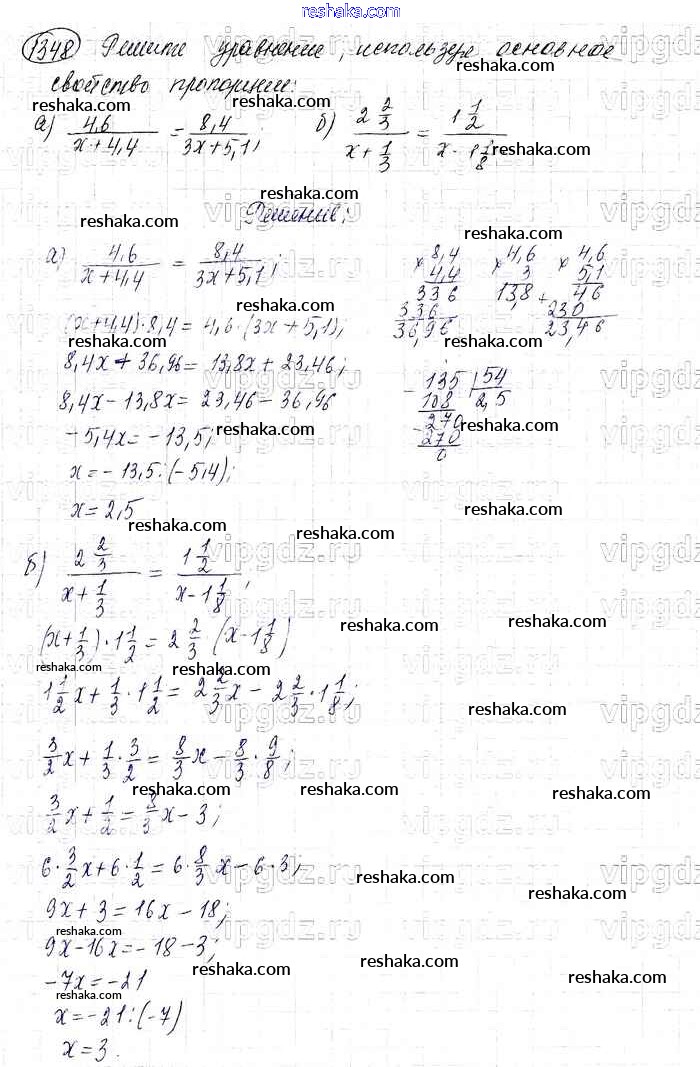 reshaka.com
1348 Решите уравнение, используя основное
свойство пропорции:
а) 4,6/(x+4,4) = 8,4/(3x+5,1); б) 2 2/3/(x+1/3) = 1 1/2/(x-1 1/8)
Решение:
а) 4,6/(x+4,4) = 8,4/(3x+5,1);
(x+4,4)·8,4=4,6·(3x+5,1);
8,4x+36,96=13,8x+23,46;
8,4x-13,8x=23,46-36,96
-5,4x=-13,5;
x=-13,5:(-5,4);
x=2,5
× 8,4
4,4
336
336
36,96
× 4,6
3
13,8
× 4,6
5,1
+ 46
230
23,46
- 135 | 54
108 | 2,5
- 270
270
0
б) 2 2/3/(x+1/3) = 1 1/2/(x-1 1/8);
(x+1/3)·1 1/2=2 2/3(x-1 1/8)
1 1/2x+1/3·1 1/2=2 2/3x-2 2/3·1 1/8;
3/2x+1/3·3/2=8/3x-8/3·9/8;
3/2x+1/2=8/3x-3;
6·3/2x+6·1/2=6·8/3x-6·3;
9x+3=16x-18;
9x-16x=-18-3;
-7x=-21
x=-21:(-7)
x=3.
vipgdz.ru